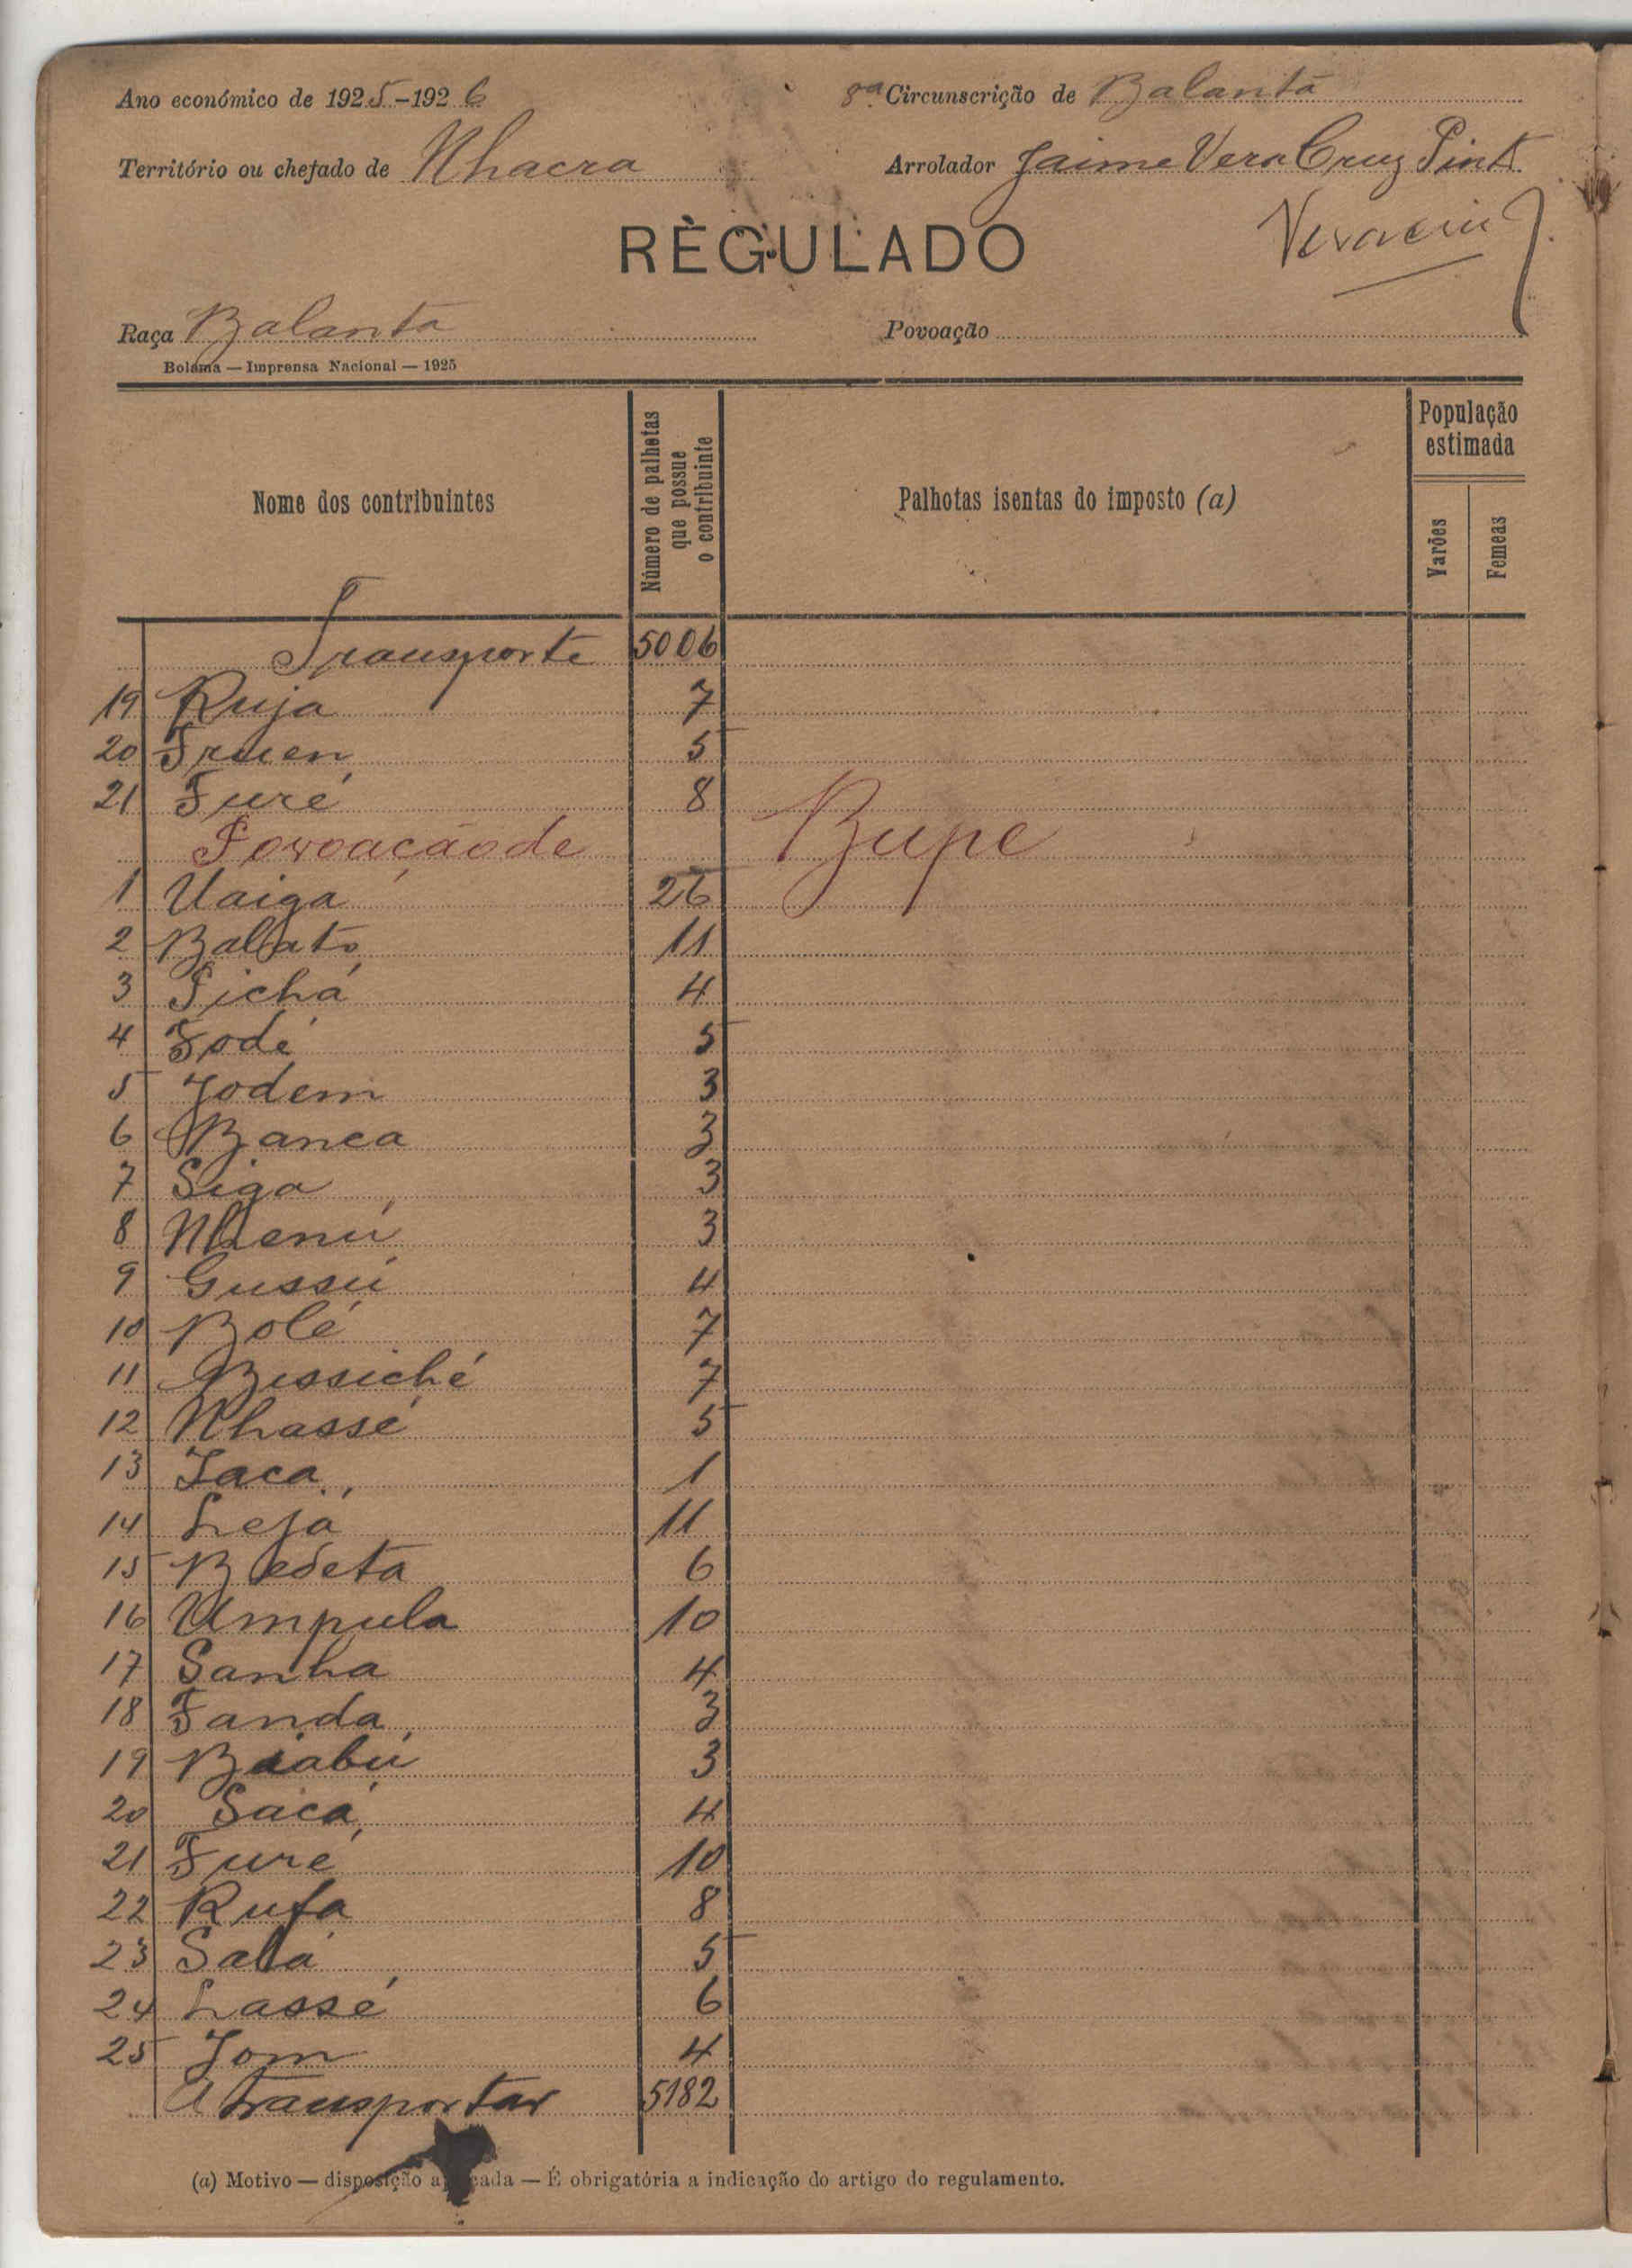 Ano económico de 1925-1926
8ª Circunscrição de Balanta
Território ou chefado de Nhacra
Arrolador Jaime Vera Cruz Pint
RÉGULADO
Raça Balanta
Povoação
Bolama — Imprensa Nacional — 1925
Nome dos contribuintes
Número de palhotas que possue o contribuinte
Palhotas isentas do imposto (a)
População estimada
Varões
Femeas
Transporte 5006
19 Ruja 7
20 5
21 Furé 8
Povoação de Bupe
1 Uaiga 26
2 11
3 Pichá 4
4 Fodé 5
5 Jodem 3
6 Banca 3
7 Siga 3
8 3
9 Gussú 4
10 Bolé 7
11 Bissiché 7
12 Nhassé 5
13 1
14 Lejá 11
15 6
16 Umpula 10
17 Sanha 4
18 Fanda 3
19 3
20 Sacá 4
21 Furé 10
22 Rufa 8
23 5
24 Lassé 6
25 Jom 4
A transportar 5182
(a) Motivo — disposição aplicada — É obrigatória a indicação do artigo do regulamento.